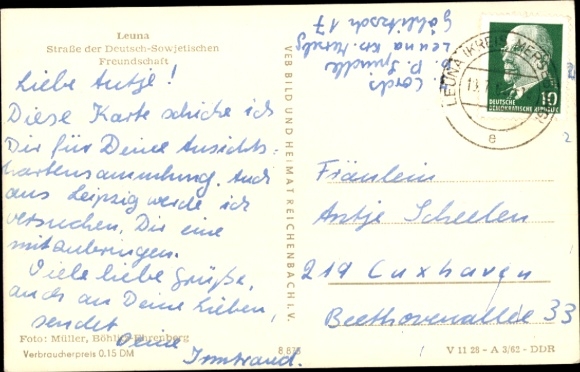 Leuna
Straße der Deutsch-Sowjetischen
Freundschaft
Liebe Antje!
Diese Karte schicke ich
Dir für Deine Ansichts-
kartensammlung. Auch
aus Leipzig werde ich
versuchen, Dir eine
mitzubringen.
Viele liebe Grüße,
auch an Deine Lieben,
sendet
Deine
Irmtraud.
Foto: Müller, Böhlitz-Ehrenberg
Verbraucherpreis 0.15 DM
B 878
VEB BILD UND HEIMAT REICHENBACH I. V.
Leuna
17
LEUNA (KREIS MERSEBURG)
e
10
DEUTSCHE
DEMOKRATISCHE REPUBLIK
2
Fräulein
Antje Scheelen
219 Cuxhaven
Beethovenallee 33
V 11 28 – A 3/62 – DDR